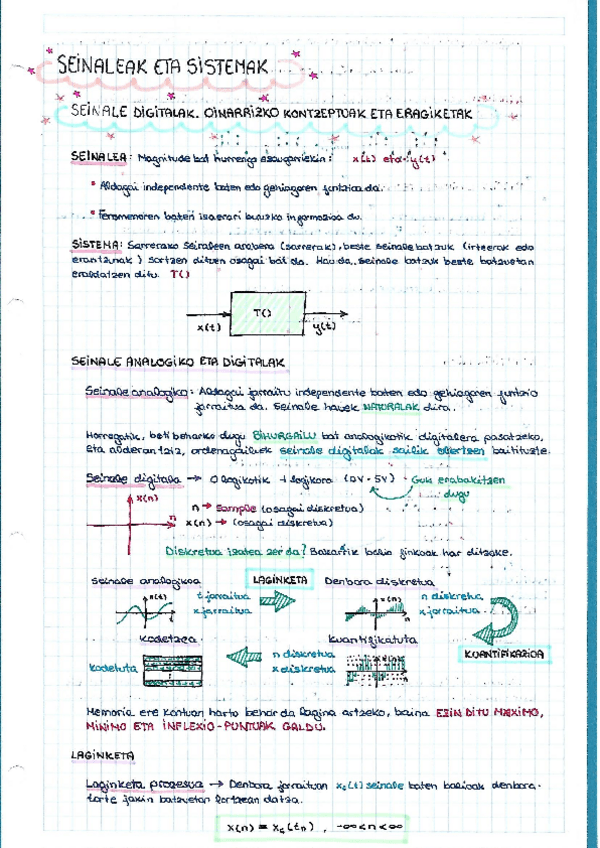 SEINALEAK ETA SISTEMAK
SEINALE DIGITALAK. OINARRIZKO KONTZEPTUAK ETA ERAGIKETAK
SEINALEA: Magnitude bat hurrengo ezaugarriekin: x(t) eta y(t)
• Aldagai independente baten edo gehiagoren funtzioa da.
• Fenomenoren baten izaerari buruzko informazioa du.
SISTEMA: Sarrerako seinaleen arabera (sarrerak), beste seinale batzuk (irteerak edo
erantzunak) sortzen dituen osagai bat da. Hau da, seinale batzuk beste batzuetan
eraldatzen ditu. T()
x(t) T() y(t)
SEINALE ANALOGIKO ETA DIGITALAK
Seinale analogiko: Aldagai jarraitu independente baten edo gehiagoren funtzio
jarraitua da. Seinale hauek NATURALAK dira.
Horregatik, beti beharko dugu BIHURGAILU bat analogikotik digitalera pasatzeko,
eta alderantziz, ordenagailuek seinale digitalak soilik ulertzen baitituzte.
Seinale digitala → 0 logikotik 1 logikora (0V-5V) Guk erabakitzen
dugu
x(n)
n
n → Sample (osagai diskretua)
x(n) → (osagai diskretua)
Diskretua izatea zer da? Bakarrik balio finkoak har ditzake.
Seinale analogikoa LAGINKETA Denbora diskretua
x(t) t jarraitua x(n) n diskretua
x jarraitua x jarraitua
Kodetzea Kuantifikatuta
kodetuta n diskretua KUANTIFIKAZIOA
x diskretua
Memoria ere kontuan hartu behar da lagina hartzeko, baina EZIN DITU MAXIMO,
MINIMO ETA INFLEXIO-PUNTUAK GALDU.
LAGINKETA
Laginketa prozesua → Denbora jarraituan x_c(t) seinale baten balioak denbora-
tarte jakin batzuetan lortzean datza.
x(n) = x_c(t_n) , -∞<n<∞